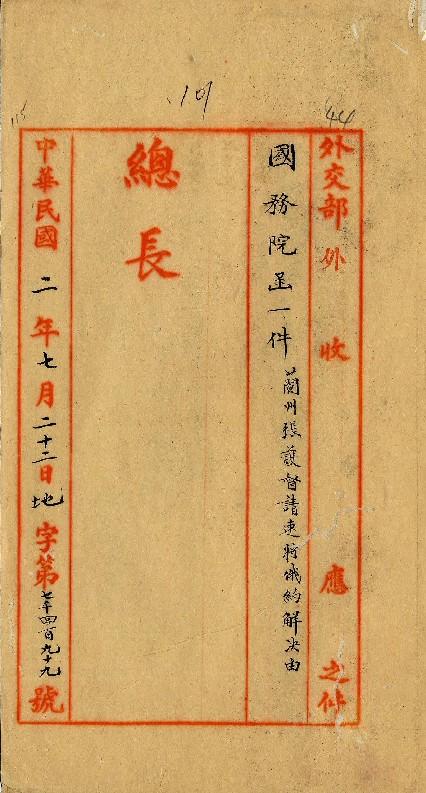 101
44
115
外交部外收應之件
國務院函一件 蘭州張護督請速將俄約解决由
總長
中華民國二年七月二十二日地字第七千四百九十九號